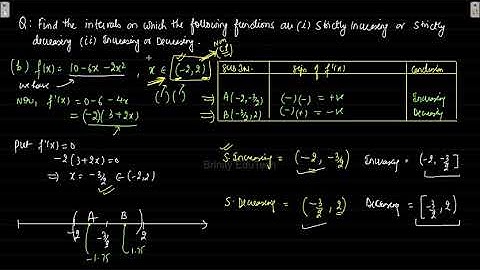 Q: Find the intervals on which the following functions are (i) Strictly Increasing or Strictly
decreasing (ii) Increasing or Decreasing.
(b) f(x) = 10-6x-2x² , x ∈ (-2,2)
we have
Now, f'(x) = 0-6-4x
= (-2)(3+2x)
Put f'(x)=0
-2(3+2x)=0
⇒ x = -3/2 ∈ (-2,2)
Sub Int. Sign of f'(x) Conclusion
⇒ A(-2,-3/2) (-)(-) = +ve Increasing
⇒ B(-3/2,2) (-)(+) = -ve Decreasing
S. Increasing = (-2, -3/2) Increasing = (-2, -3/2]
S. Decreasing = (-3/2, 2) Decreasing = [-3/2, 2)
Brinity Education
A B
-2 -3/2 2
-1.75 1.75